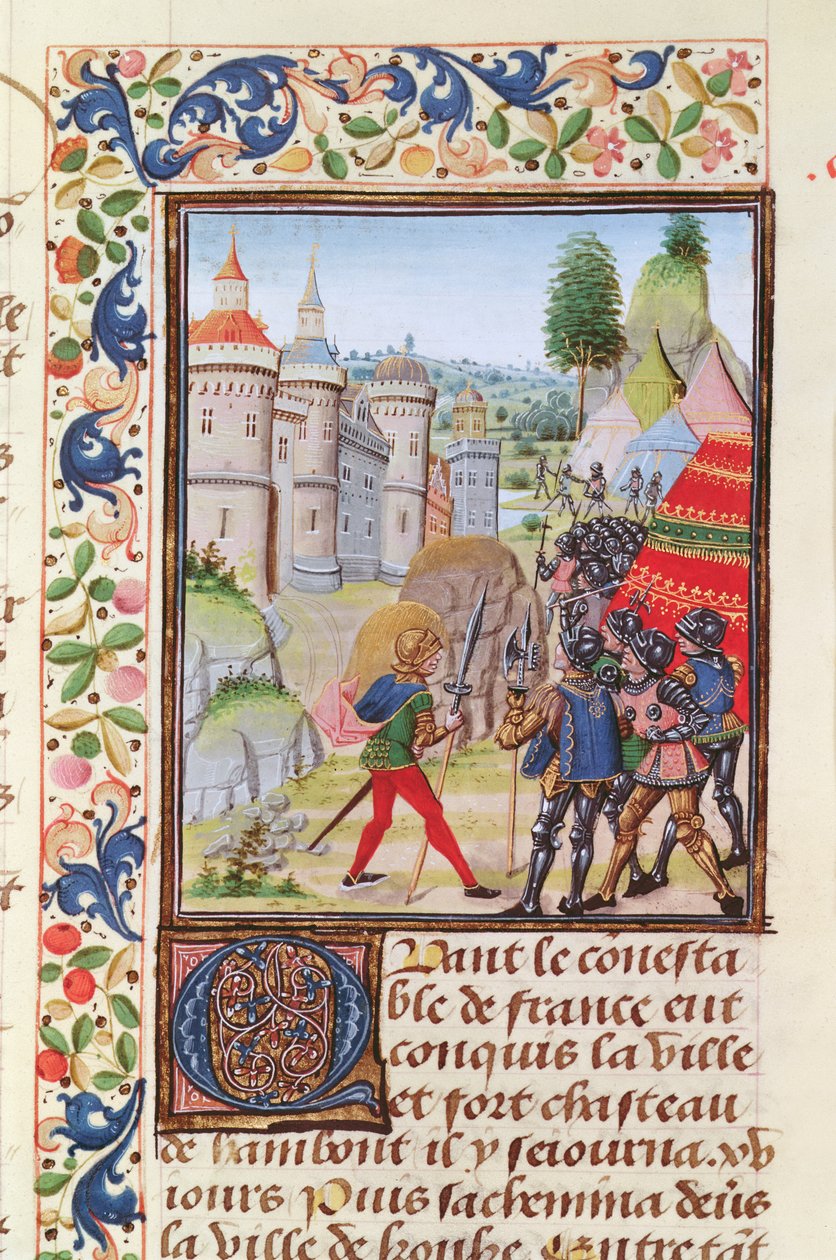 Quant le cōnesta
ble de france eut
conquis la ville
et fort chasteau
de hambont il y seiourna .xv
iours Puis sachemina deūs
la ville de konke Entretāt